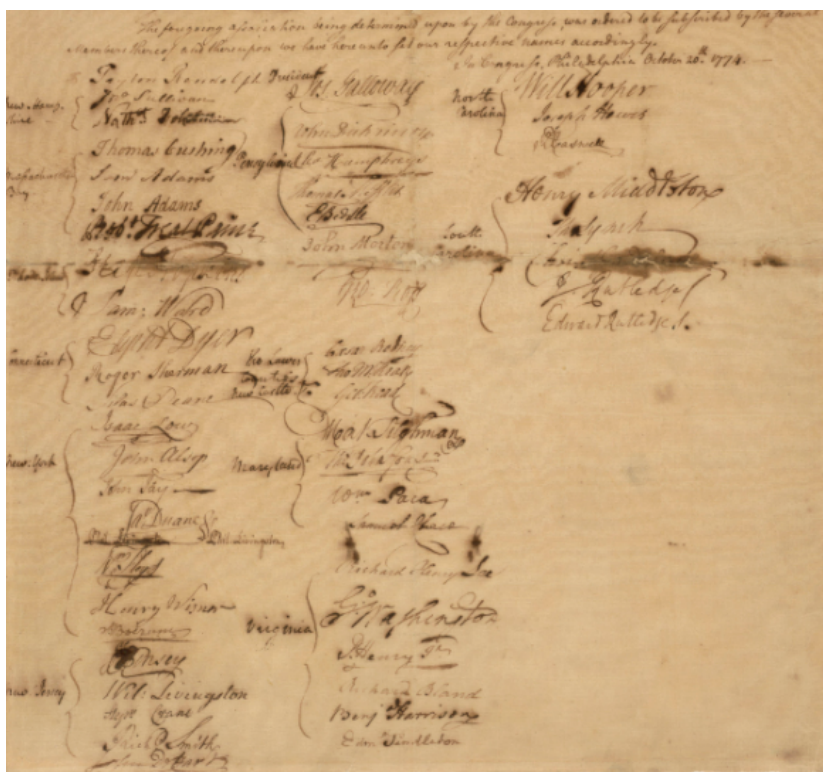 The foregoing association being determined upon by the Congress, was ordered to be subscribed by the several
Members thereof and thereupon we have hereunto set our respective names accordingly.
In Congress, Philadelphia October 20th. 1774.
Peyton Randolph President
New Hamp-
shire
Jno Sullivan
Nathl Folsom
Massachusetts
Bay
Thomas Cushing
Saml Adams
John Adams
Robt Treat Paine
Saml: Ward
Connecticut
Elipht Dyer
Roger Sherman
Silas Deane
New York
Isaac Low
John Alsop
John Jay
Jas Duane
Phil Livingston
Wm Floyd
Henry Wisner
S: Boerum
New Jersey
J Kinsey
Wil: Livingston
Stepn Crane
Richd Smith
John De Hart
Jos Galloway
Pensylvania
John Dickinson
Cha Humphreys
Thomas Mifflin
E Biddle
John Morton
Geo: Ross
The Lower
Counties
New Castle
Caesar Rodney
Tho M:Kean
Geo Read
Maryland
Mat Tilghman
Wm Paca
Samuel Chase
Virginia
Richard Henry Lee
Go Washington
P. Henry Jr
Richard Bland
Benj Harrison
Edmd Pendleton
North
Carolina
Will Hooper
Joseph Hewes
R Caswell
South
Carolina
Henry Middleton
Tho Lynch
J Rutledge
Edward Rutledge